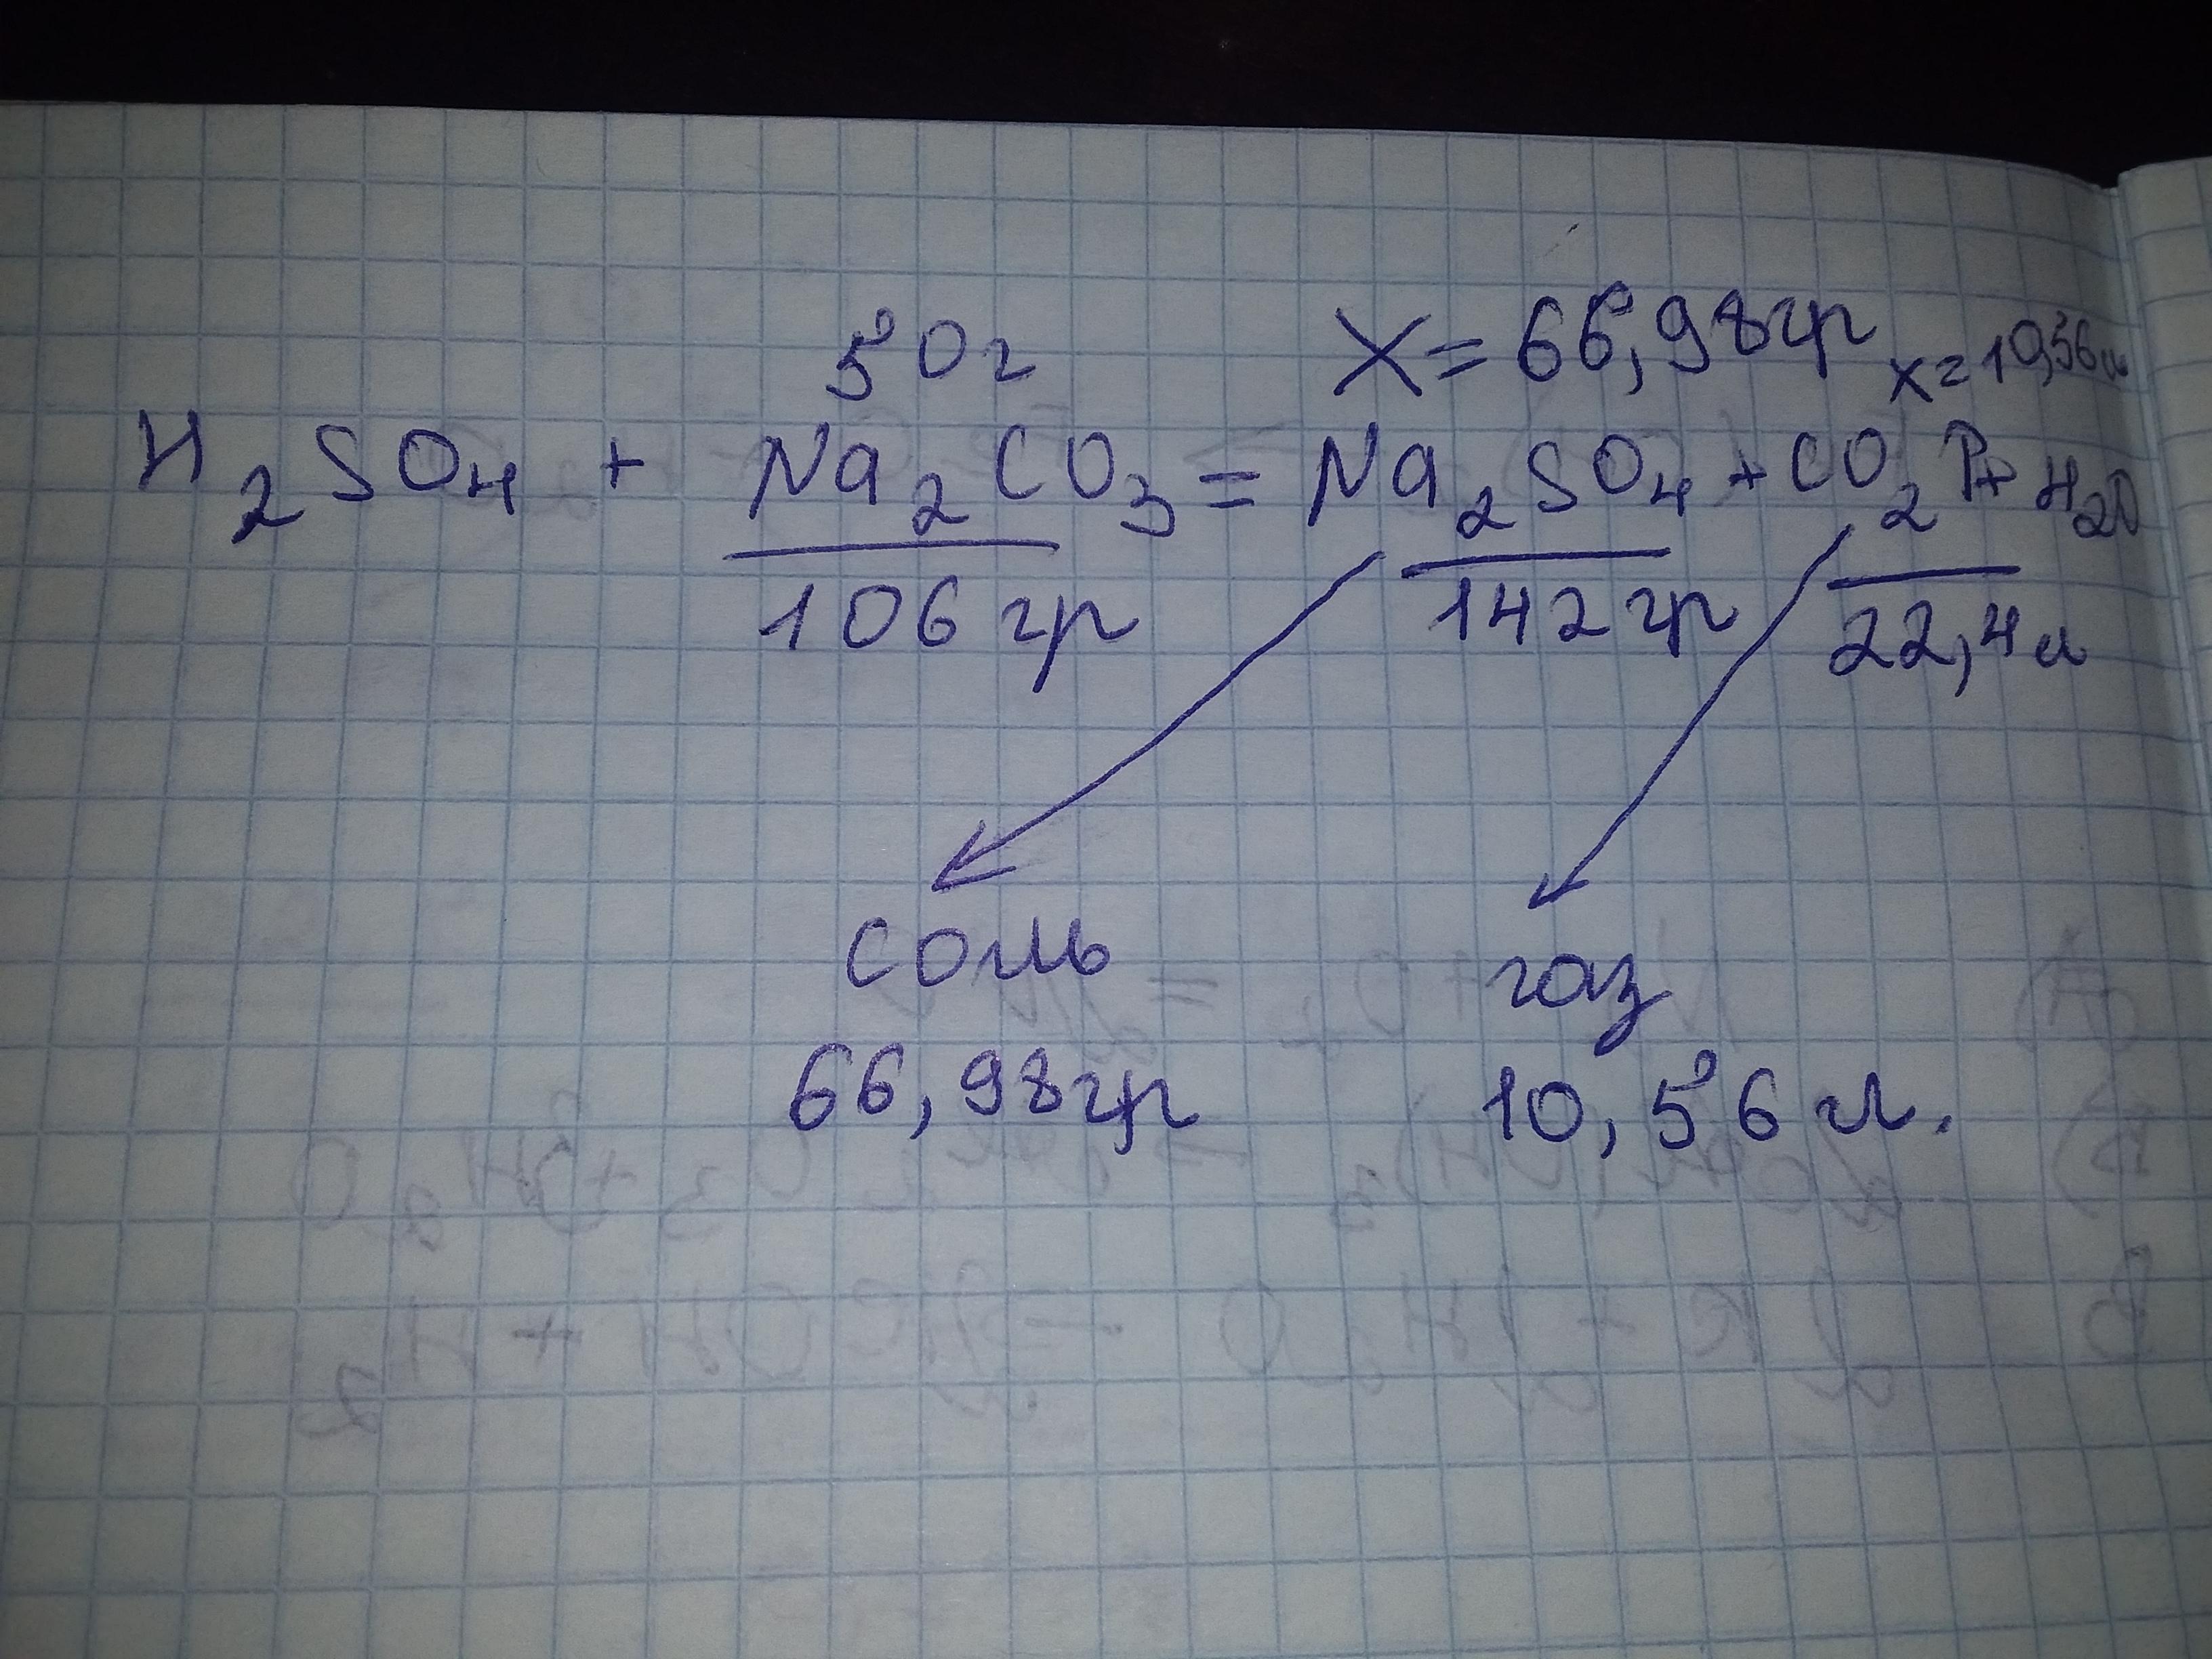 50г X = 66,98гр x = 10,56л
H2SO4 + Na2CO3 = Na2SO4 + CO2↑ + H2O
106гр 142гр 22,4л
соль газ
66,98гр 10,56л.